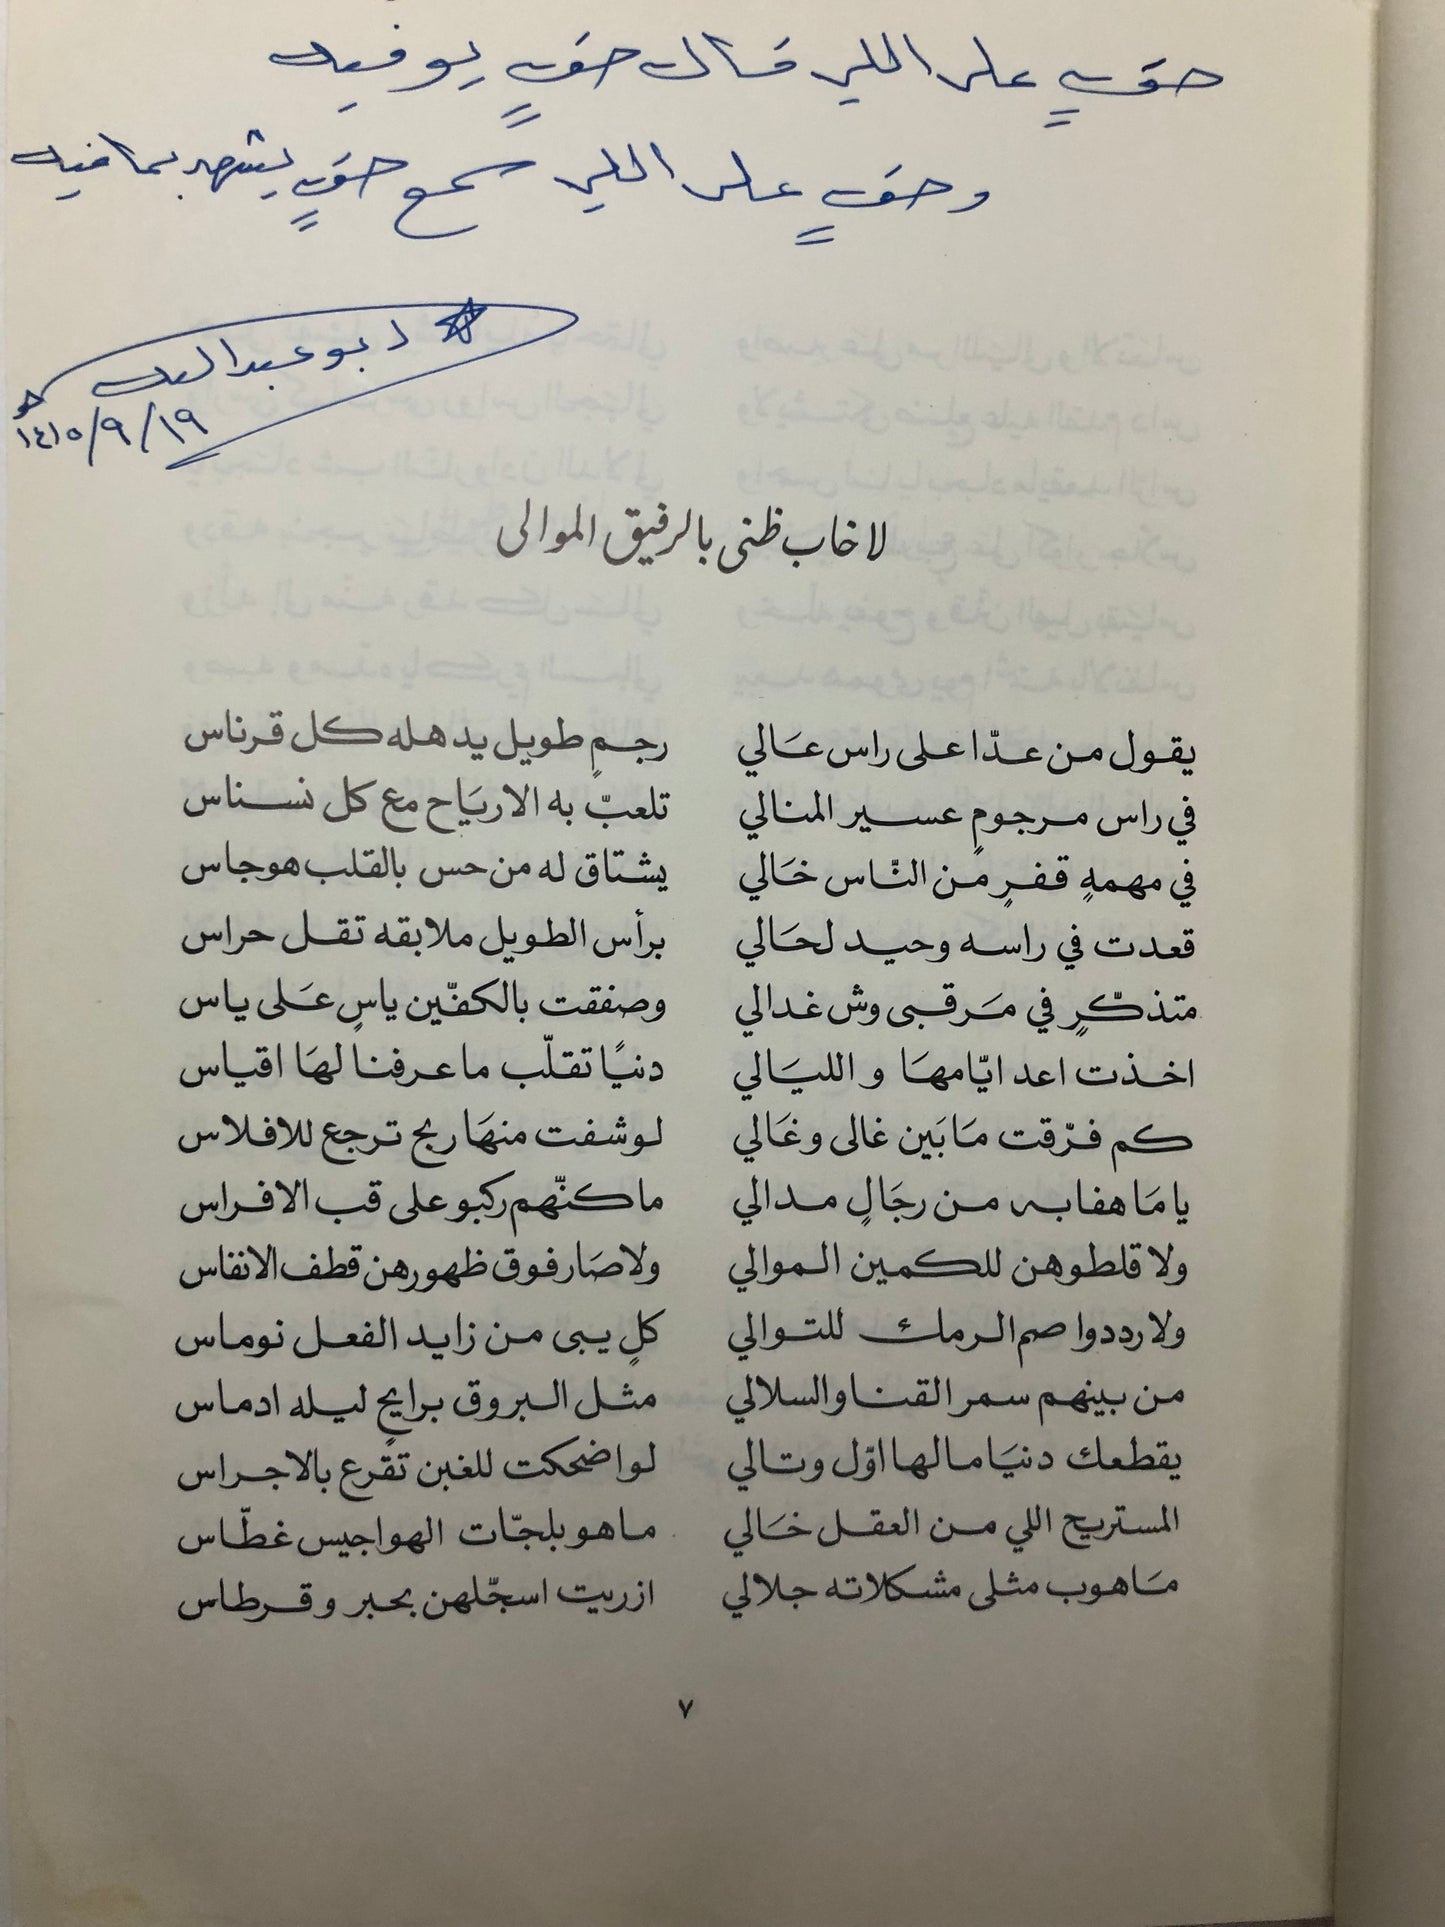 حقٍ على اللي قال حقٍ يوفيه
وحقٍ على اللي سمع حقٍ يشهد بما فيه
ابو عبدالملك
١٤١٥/٩/١٩
لا خاب ظنى بالرفيق الموالى
يقول من عدّا على راس عَالي رجمٍ طويل يدهله كل قرناس
في راس مرجومٍ عسير المنالي تلعبّ به الاريَاح مع كل نسناس
في مهمهٍ قفرٍ من النّاس خَالي يشتاق له من حس بالقلب هوجاس
قعدت في راسه وحيد لحَالي برأس الطويل ملابقه تقل حراس
متذكّرٍ في مَرقبى وش غدالي وصفقت بالكفّين ياسٍ عَلى ياس
اخذت اعد ايّامهَا و الليَالي دنيًا تقلّب ما عرفنا لهَا اقياس
كم فرّقت مَابَين غالى وغَالي لوشفت منهَا ربح ترجع للافلاس
يا مَا هفابه من رجَالٍ مدالي ما كنّهم ركبو على قب الافراس
ولا قلطوهن للكمين الموالي ولا صَار فوق ظهورهن قطف الانفاس
ولا رددوا صم الرمك للتوالي كلٍ يبى من زايد الفعل نوماس
من بينهم سمر القنا والسلالي مثل البروق برايحٍ ليله ادماس
يقطعك دنيَا مالها اوّل وتالي لو اضحكت للغبن تقرع بالاجراس
المستريح اللي من العقل خَالي ماهو بلجّات الهواجيس غطّاس
مَاهوب مثلى مشكلاته جلالي ازريت اسجّلهن بحبر وقرطاس
٧